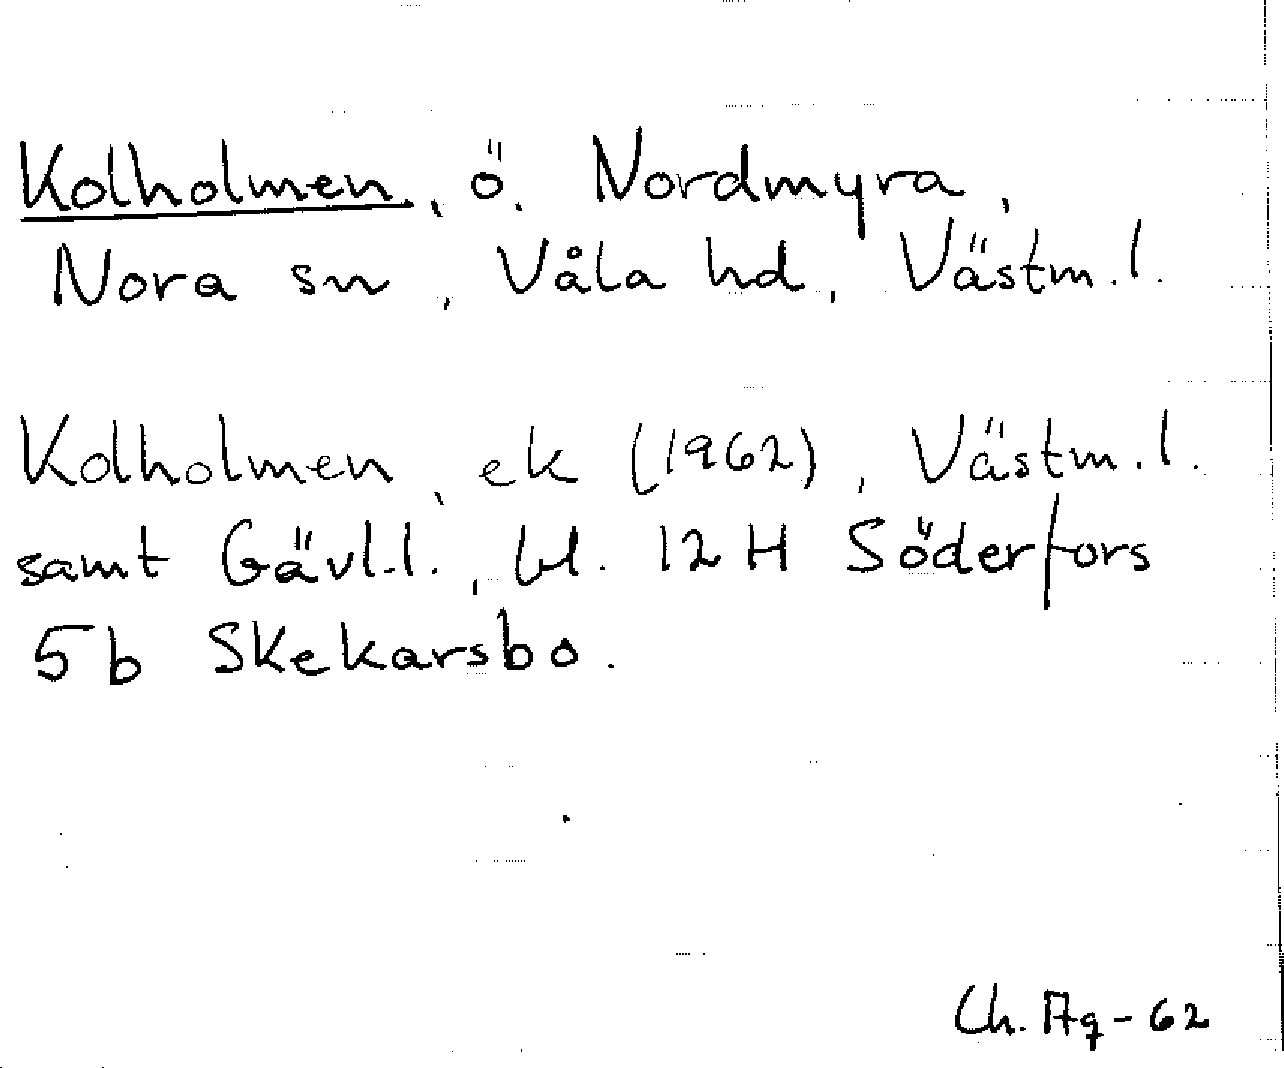 Kolholmen, ö. Nordmyra,
Nora sn, Våla hd, Västm.l.
Kolholmen, ek (1962), Västm.l.
samt Gävl.l., bl. 12 H Söderfors
5b Skekarsbo.
Ch. Ag-62